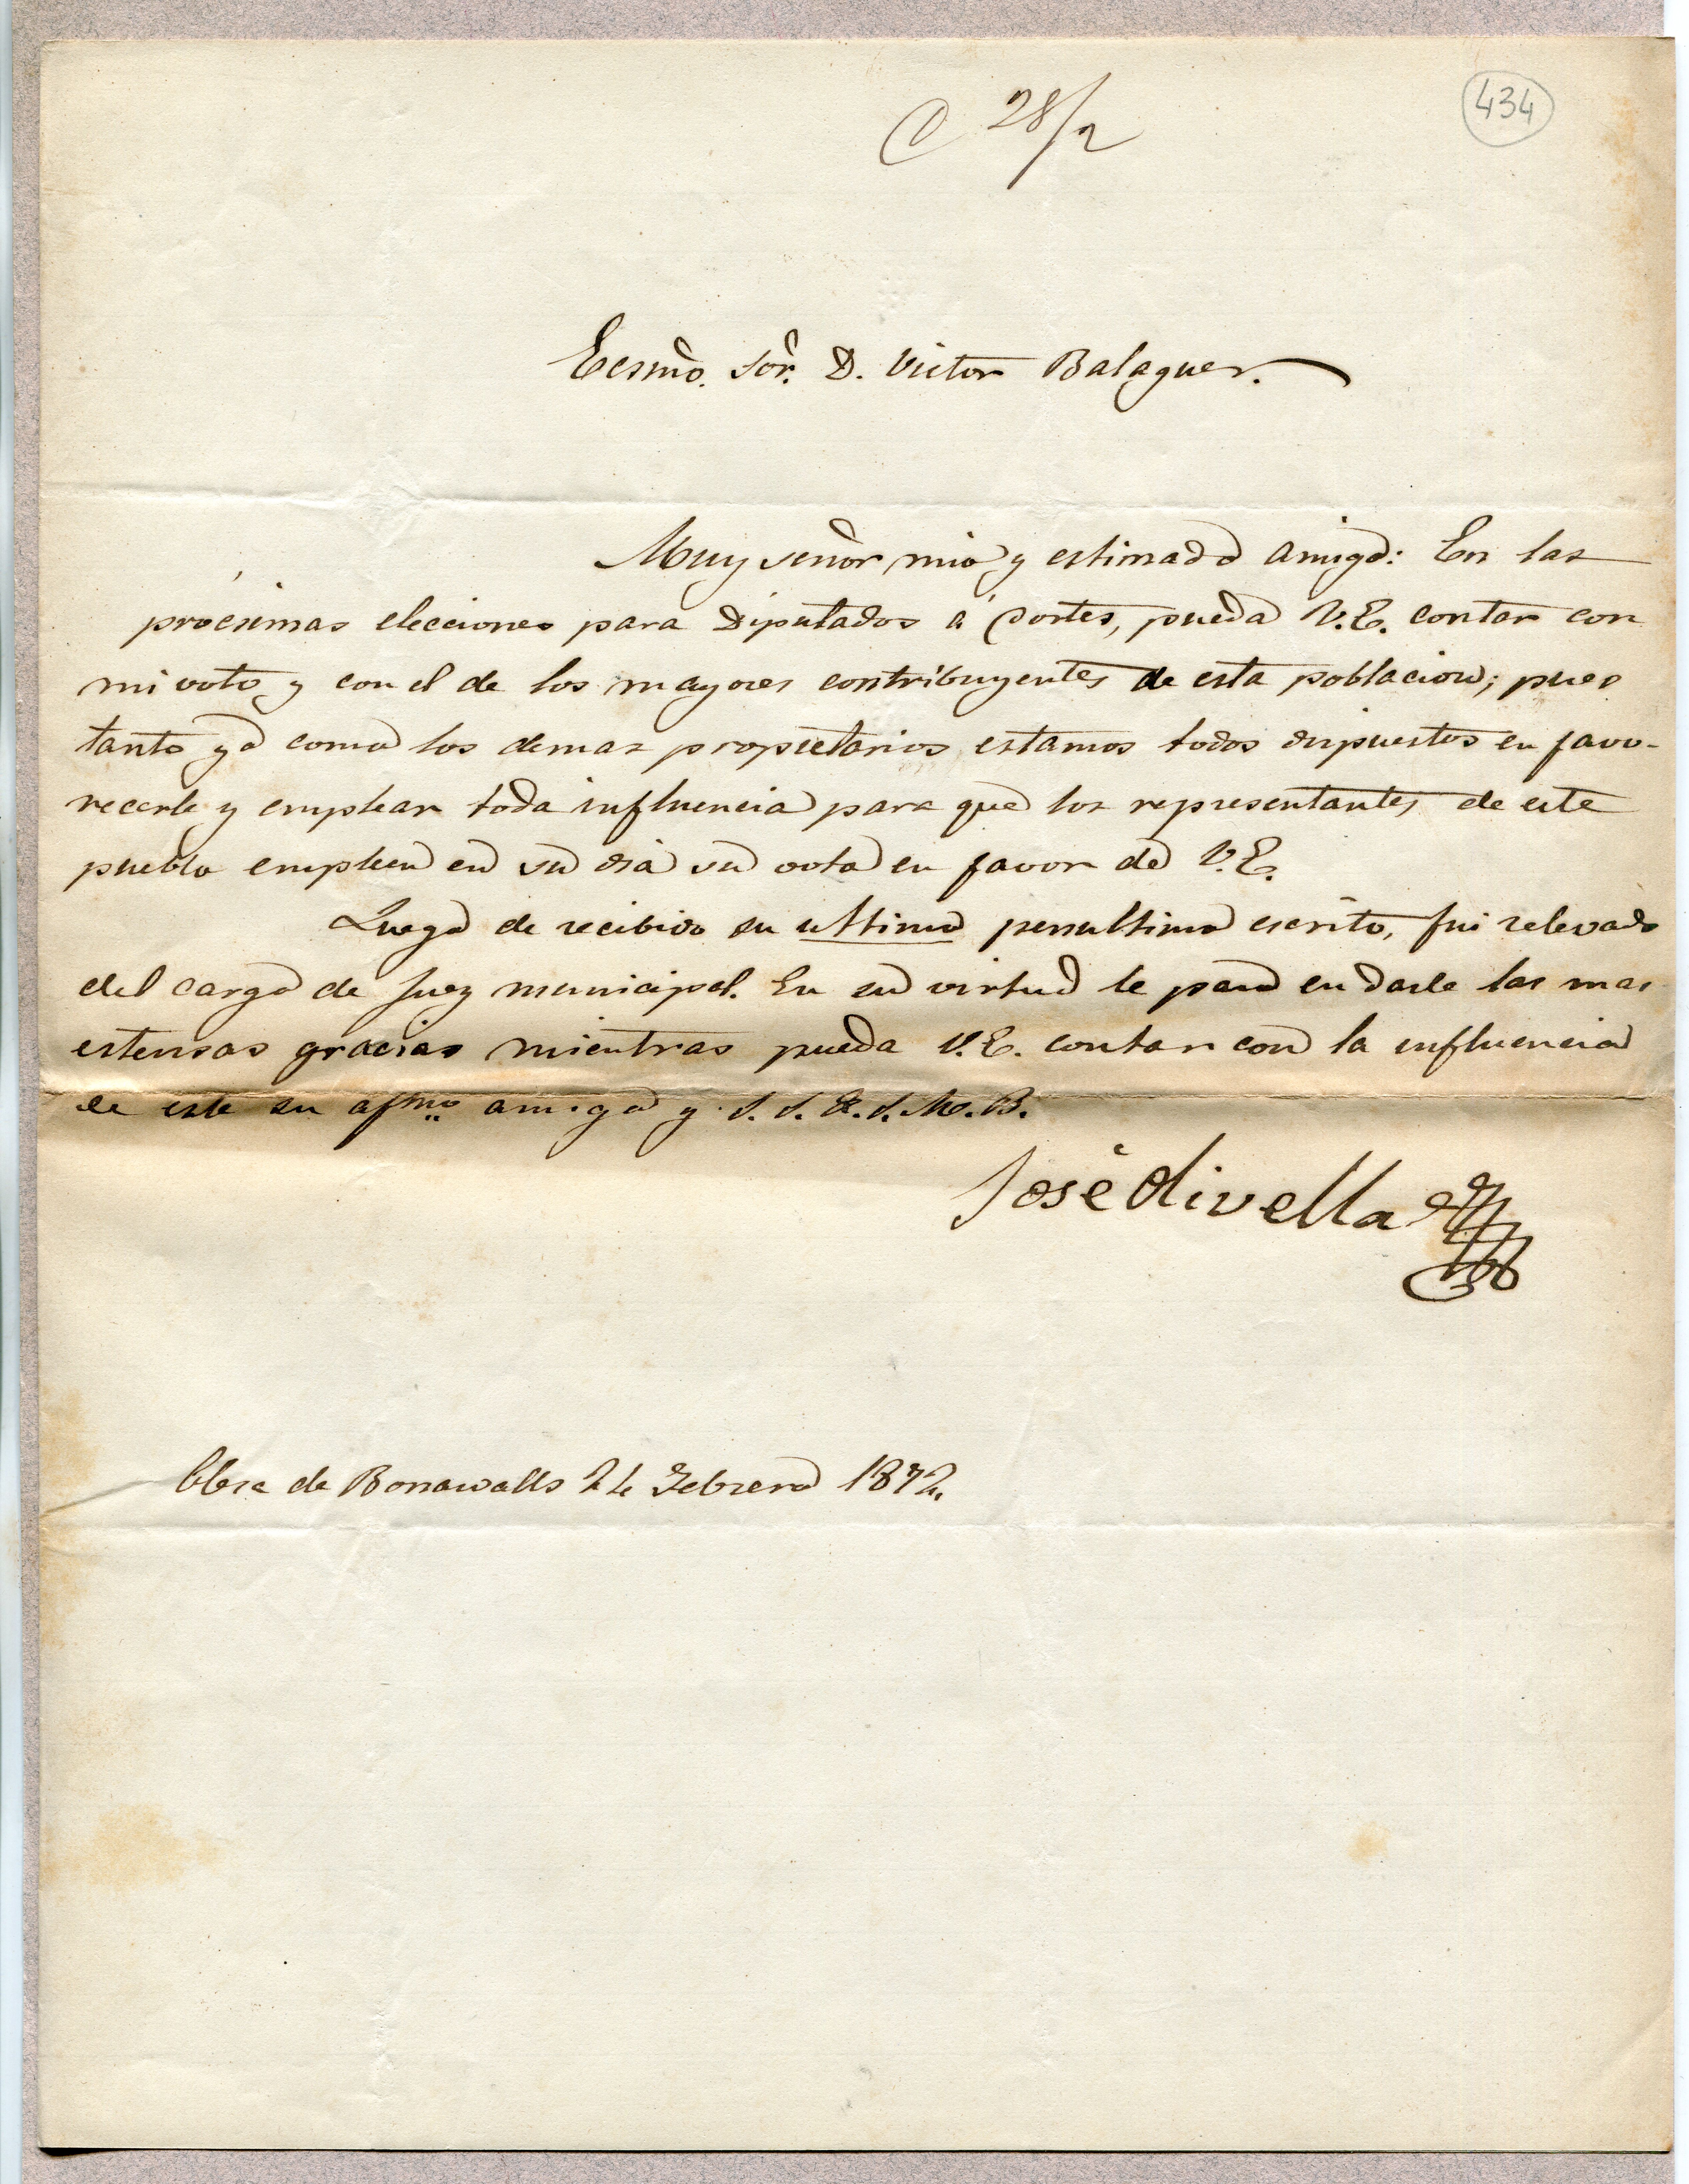 C 28/2
434
Ecsmo. Sor. D. Victor Balaguer.
Muy señor mio y estimado amigo: En las
procsimas elecciones para Diputados á Cortes, pueda V.E. contar con
mi voto y con el de los mayores contribuyentes de esta poblacion; pues
tanto yo como los demas propietarios, estamos todos dispuestos en favo-
recerle y emplear toda influencia para que los representantes de este
pueblo empleen en su dia su voto en favor de V.E.
Luego de recibido su ultimo penultimo escrito, fui relevado
del cargo de Juez municipal. En su virtud le paso en darle las mas
estensas gracias mientras pueda V.E. contar con la influencia
de este su afmo amigo y S. S. Q. S. M. B.
José Olivella
Olesa de Bonasvalls 24 Febrero 1872.